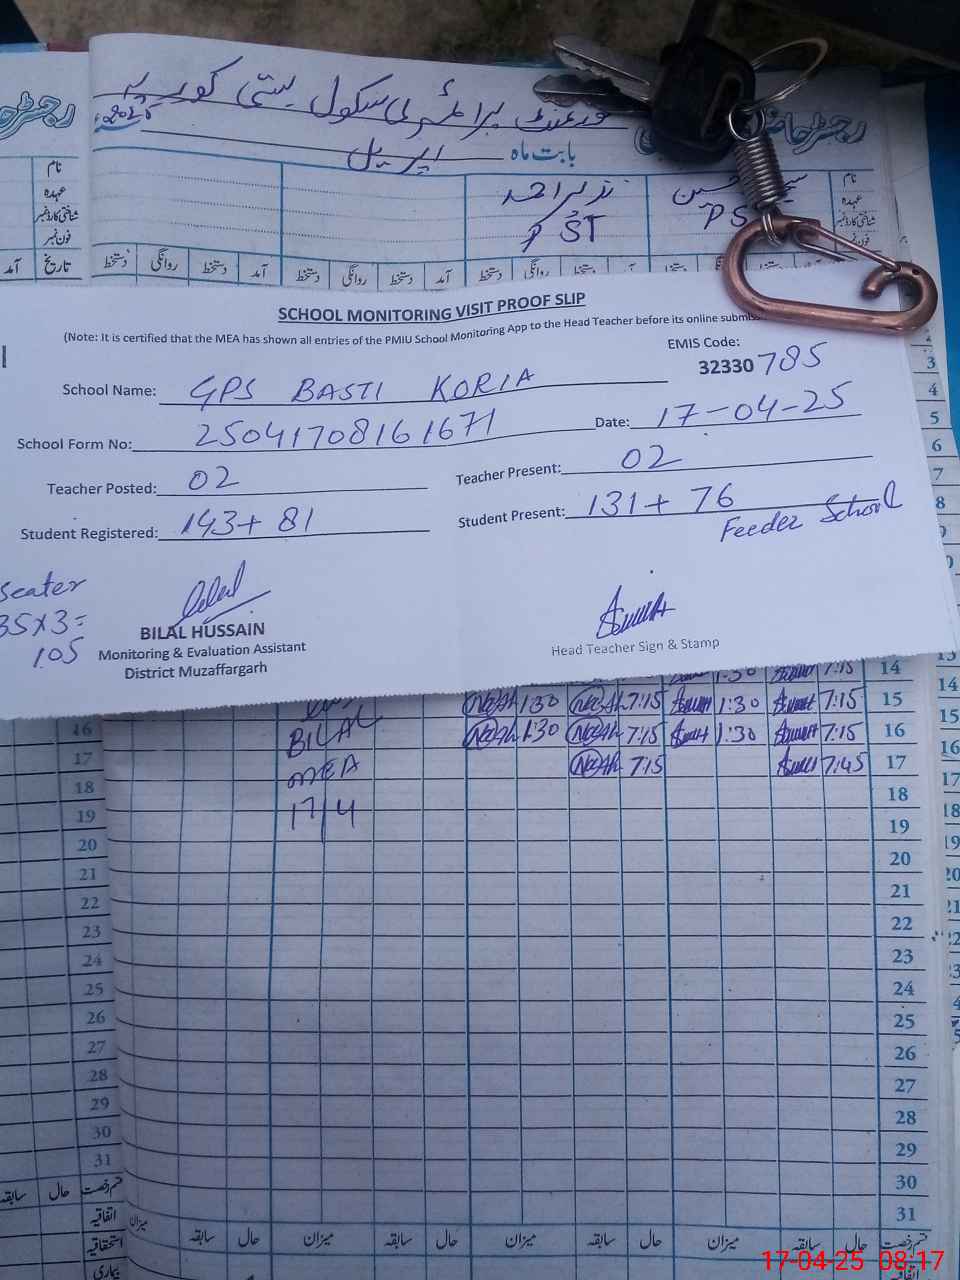 گورنمنٹ پرائمری سکول بستی کوریہ
رجسٹر حاضری
2025ء
بابت ماہ اپریل
نام
عہدہ
شناختی کارڈ نمبر
فون نمبر
نذیر احمد
PST
حسین
PS
تاریخ آمد دستخط روانگی دستخط آمد دستخط روانگی دستخط آمد دستخط روانگی دستخط
SCHOOL MONITORING VISIT PROOF SLIP
(Note: It is certified that the MEA has shown all entries of the PMIU School Monitoring App to the Head Teacher before its online submis
EMIS Code:
32330785
School Name: GPS BASTI KORIA
School Form No: 25041708161671
Date: 17-04-25
Teacher Posted: 02
Teacher Present: 02
Student Registered: 143+ 81
Student Present: 131+ 76
Feeder School
seater
35x3=
105
BILAL HUSSAIN
Monitoring & Evaluation Assistant
District Muzaffargarh
Head Teacher Sign & Stamp
1:30 7:15 14
1:30 7:15 1:30 7:15 15
BILAL 1:30 7:15 1:30 7:15 16
MEA 7:15 7:45 17
17/4 18
19
20
21
22
23
24
25
26
27
28
29
30
31
میزان سابقہ حال میزان سابقہ حال میزان سابقہ حال میزان سابقہ حال قسم رخصت
اتفاقیہ
استحقاقیہ
بیماری
17-04-25 08:17